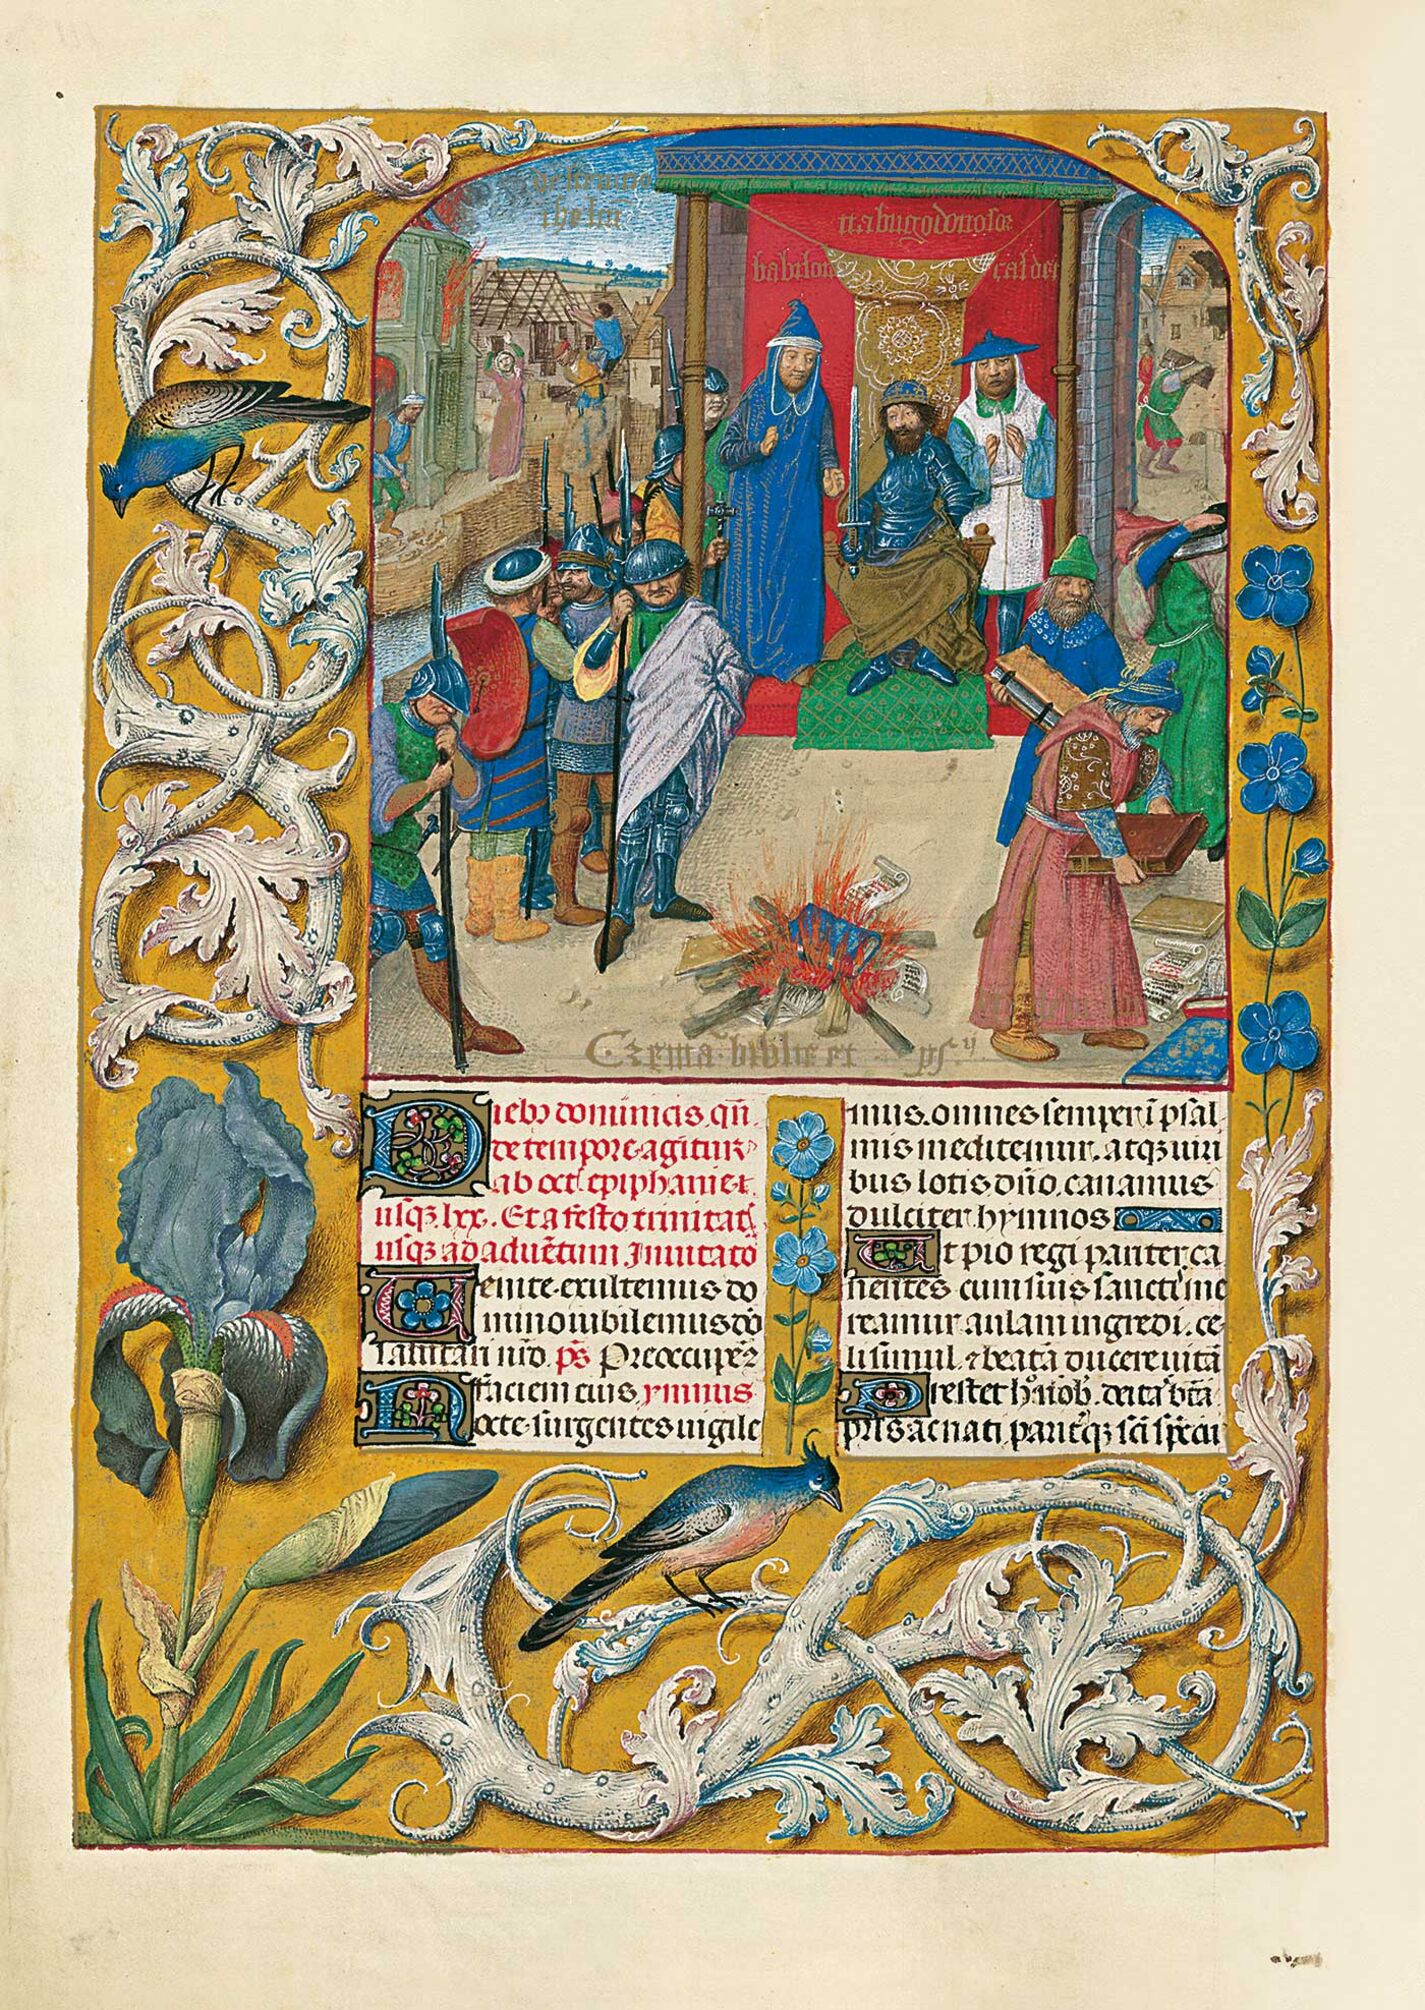 nabugodonosor
babilon caldei
Diebus dominicis. qn̄
de tempore agitur
ab oct̄ epiphanie ⁊
usqꝫ lxx. Et a festo trinitatꝭ
usqꝫ ad aduētum Inuitato
Uenite exultemus do
mino iubilemus dō
salutari nr̄o. ps̄ Preoccupem⁹
faciem eius. ymnus
Nocte surgentes vigile
mus. omnes semper ī psal
mis meditemur. atqꝫ viri
bus totis dn̄o. canamus
dulciter hymnos
Ut pio regi pariter ca
nentes cum suis sanctis me
reamur aulam ingredi. ce
li simul. ⁊ beatā ducere uitā
Prestet h° nob̄. deita bt̄a
pris ac nati. pariterqꝫ sc̄i sp̄c